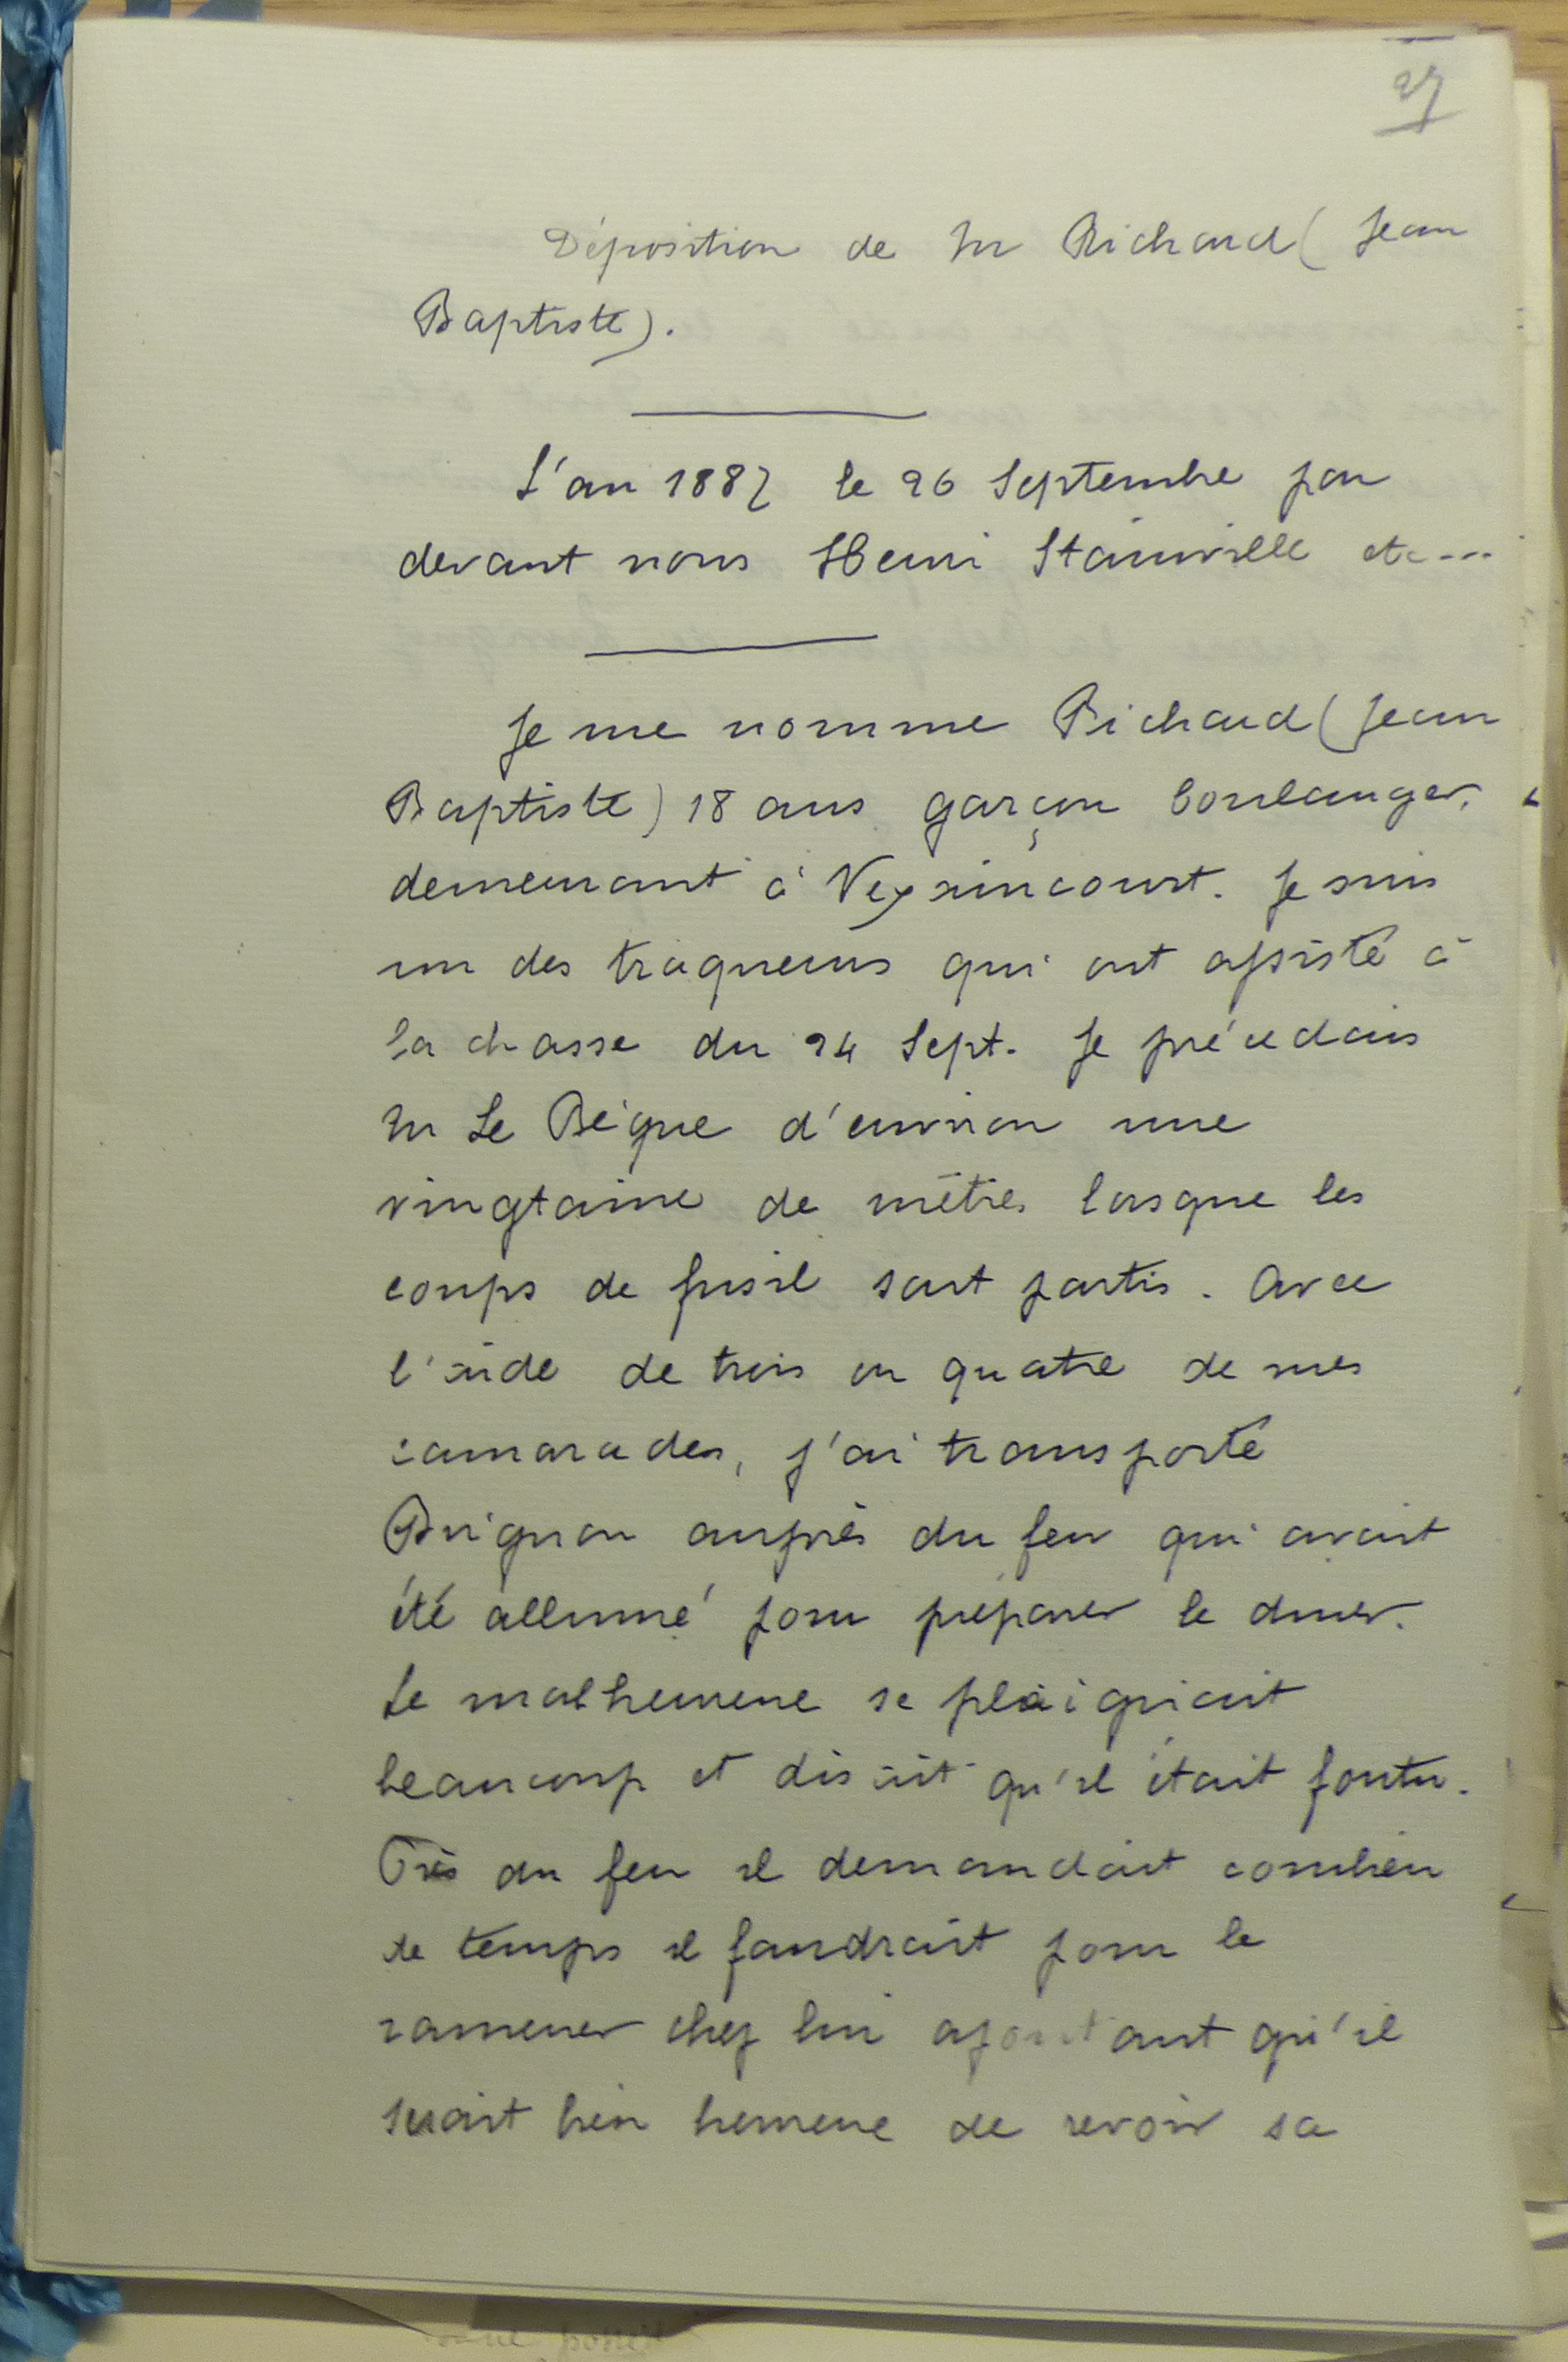 27
Déposition de Mr Richard (Jean
Baptiste).
L'an 1887 le 26 Septembre par
devant nous Henri Stainville etc...
Je me nomme Richard (Jean
Baptiste) 18 ans garçon boulanger,
demeurant à Vexaincourt. Je suis
un des traqueurs qui ont assisté à
la chasse du 24 Sept. Je précédais
Mr Le Bègue d'environ une
vingtaine de mètres lorsque les
coups de fusil sont partis. Avec
l'aide de trois ou quatre de mes
camarades, j'ai transporté
Brignon auprès du feu qui avait
été allumé pour préparer le diner.
Le malheureux se plaignait
beaucoup et disait qu'il était foutu.
Près du feu il demandait combien
de temps il faudrait pour le
ramener chez lui ajoutant qu'il
serait bien heureux de revoir sa